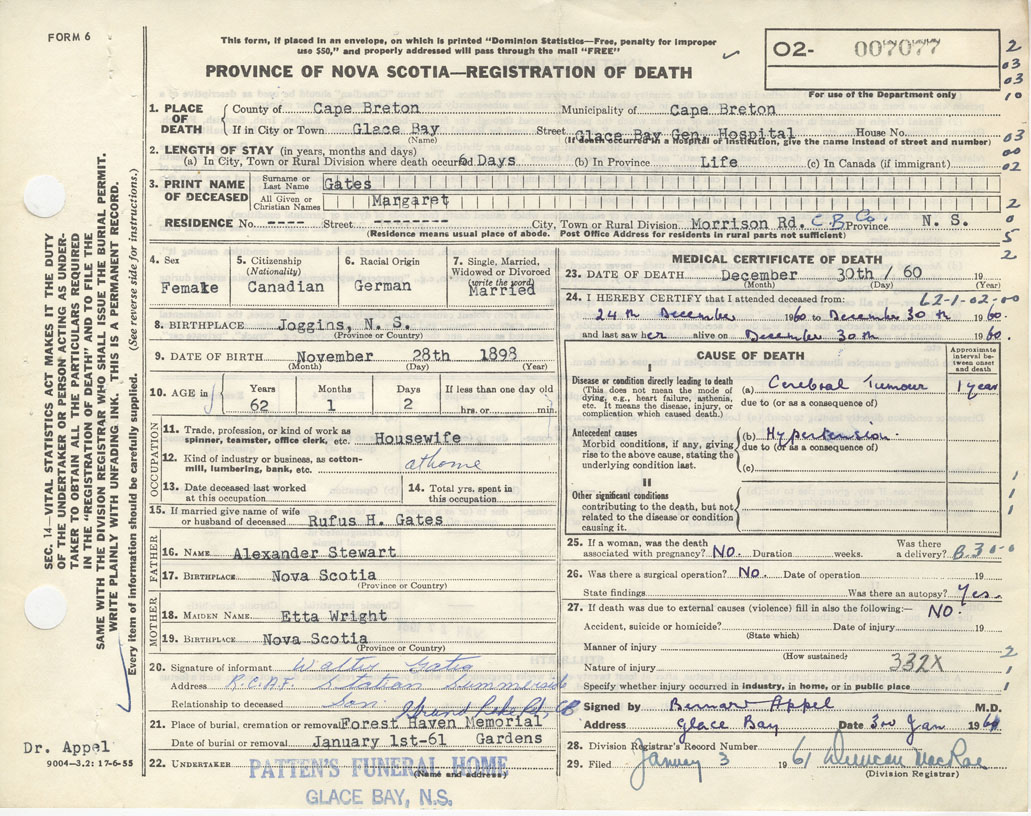 FORM 6
This form, if placed in an envelope, on which is printed "Dominion Statistics—Free, penalty for improper
use $50," and properly addressed will pass through the mail "FREE"
PROVINCE OF NOVA SCOTIA—REGISTRATION OF DEATH
02- 007077
For use of the Department only
2
03
03
10
1. PLACE OF DEATH
County of Cape Breton Municipality of Cape Breton
If in City or Town Glace Bay Street Glace Bay Gen. Hospital House No.
(Name) (If death occurred in a hospital or institution, give the name instead of street and number)
03
00
02
2. LENGTH OF STAY (in years, months and days)
(a) In City, Town or Rural Division where death occurred 6 Days (b) In Province Life (c) In Canada (if immigrant)
3. PRINT NAME OF DECEASED
Surname or Last Name Gates
All Given or Christian Names Margaret
RESIDENCE No. ---- Street -------- City, Town or Rural Division Morrison Rd. C.B. Co. Province N. S.
(Residence means usual place of abode. Post Office Address for residents in rural parts not sufficient)
2
0
5
2
4. Sex Female
5. Citizenship (Nationality) Canadian
6. Racial Origin German
7. Single, Married, Widowed or Divorced (write the word) Married
8. BIRTHPLACE Joggins, N. S.
(Province or Country)
9. DATE OF BIRTH November 28th 1898
(Month) (Day) (Year)
10. AGE in Years 62 Months 1 Days 2 If less than one day old hrs. or min.
OCCUPATION
11. Trade, profession, or kind of work as spinner, teamster, office clerk, etc. Housewife
12. Kind of industry or business, as cotton-mill, lumbering, bank, etc. at home
13. Date deceased last worked at this occupation
14. Total yrs. spent in this occupation
15. If married give name of wife or husband of deceased Rufus H. Gates
FATHER
16. NAME Alexander Stewart
17. BIRTHPLACE Nova Scotia
(Province or Country)
MOTHER
18. MAIDEN NAME Etta Wright
19. BIRTHPLACE Nova Scotia
(Province or Country)
20. Signature of informant Walter Gates
Address R.C.A.F. Station Summerside
Relationship to deceased Son
21. Place of burial, cremation or removal Forest Haven Memorial
Date of burial or removal January 1st-61 Gardens
22. UNDERTAKER PATTEN'S FUNERAL HOME
(Name and address)
GLACE BAY, N.S.
MEDICAL CERTIFICATE OF DEATH
23. DATE OF DEATH December 30th / 60 19
(Month) (Day) (Year)
24. I HEREBY CERTIFY that I attended deceased from: 62-1-02-00
24th December 1960 to December 30th 1960
and last saw her alive on December 30th 1960
CAUSE OF DEATH
Approximate interval between onset and death
I
Disease or condition directly leading to death (a) Cerebral Tumour 1 year
(This does not mean the mode of dying, e.g., heart failure, asthenia, etc. It means the disease, injury, or complication which caused death.)
due to (or as a consequence of)
Antecedent causes (b) Hypertension
Morbid conditions, if any, giving rise to the above cause, stating the underlying condition last.
due to (or as a consequence of)
(c)
II
Other significant conditions
contributing to the death, but not related to the disease or condition causing it.
1
1
1
25. If a woman, was the death associated with pregnancy? NO. Duration weeks. Was there a delivery?
26. Was there a surgical operation? NO. Date of operation 19
State findings Was there an autopsy? Yes.
27. If death was due to external causes (violence) fill in also the following:— NO.
Accident, suicide or homicide? Date of injury 19
(State which)
Manner of injury 2
(How sustained)
Nature of injury 332X 1
Specify whether injury occurred in industry, in home, or in public place 1
Signed by Bernard Appel M.D.
Address Glace Bay Date Jan 1961
28. Division Registrar's Record Number
29. Filed January 3 1961 Duncan MacRae
(Division Registrar)
SEC. 14—VITAL STATISTICS ACT MAKES IT THE DUTY
OF THE UNDERTAKER OR PERSON ACTING AS UNDER-
TAKER TO OBTAIN ALL THE PARTICULARS REQUIRED
IN THE "REGISTRATION OF DEATH" AND TO FILE THE
SAME WITH THE DIVISION REGISTRAR WHO SHALL ISSUE THE BURIAL PERMIT.
WRITE PLAINLY WITH UNFADING INK. THIS IS A PERMANENT RECORD.
Every item of information should be carefully supplied. (See reverse side for instructions.)
Dr. Appel
9004—3.2: 17-6-55